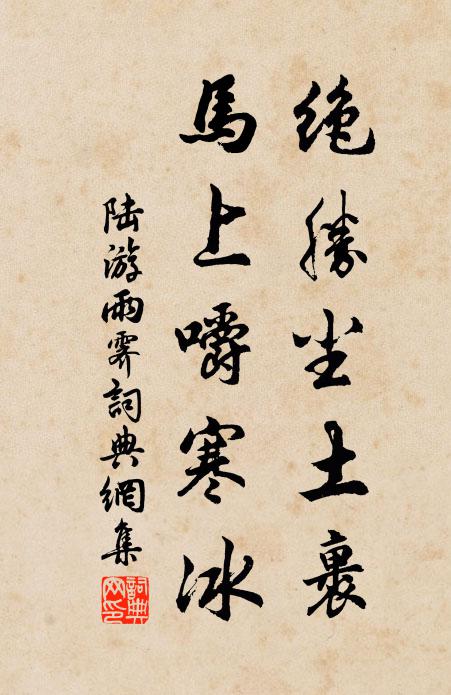 绝勝尘土裏
馬上嚼寒冰
陆游雨霁詞典網集
詞典网印